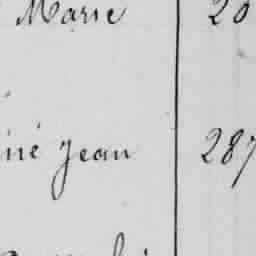 Marie 20
né Jean 287